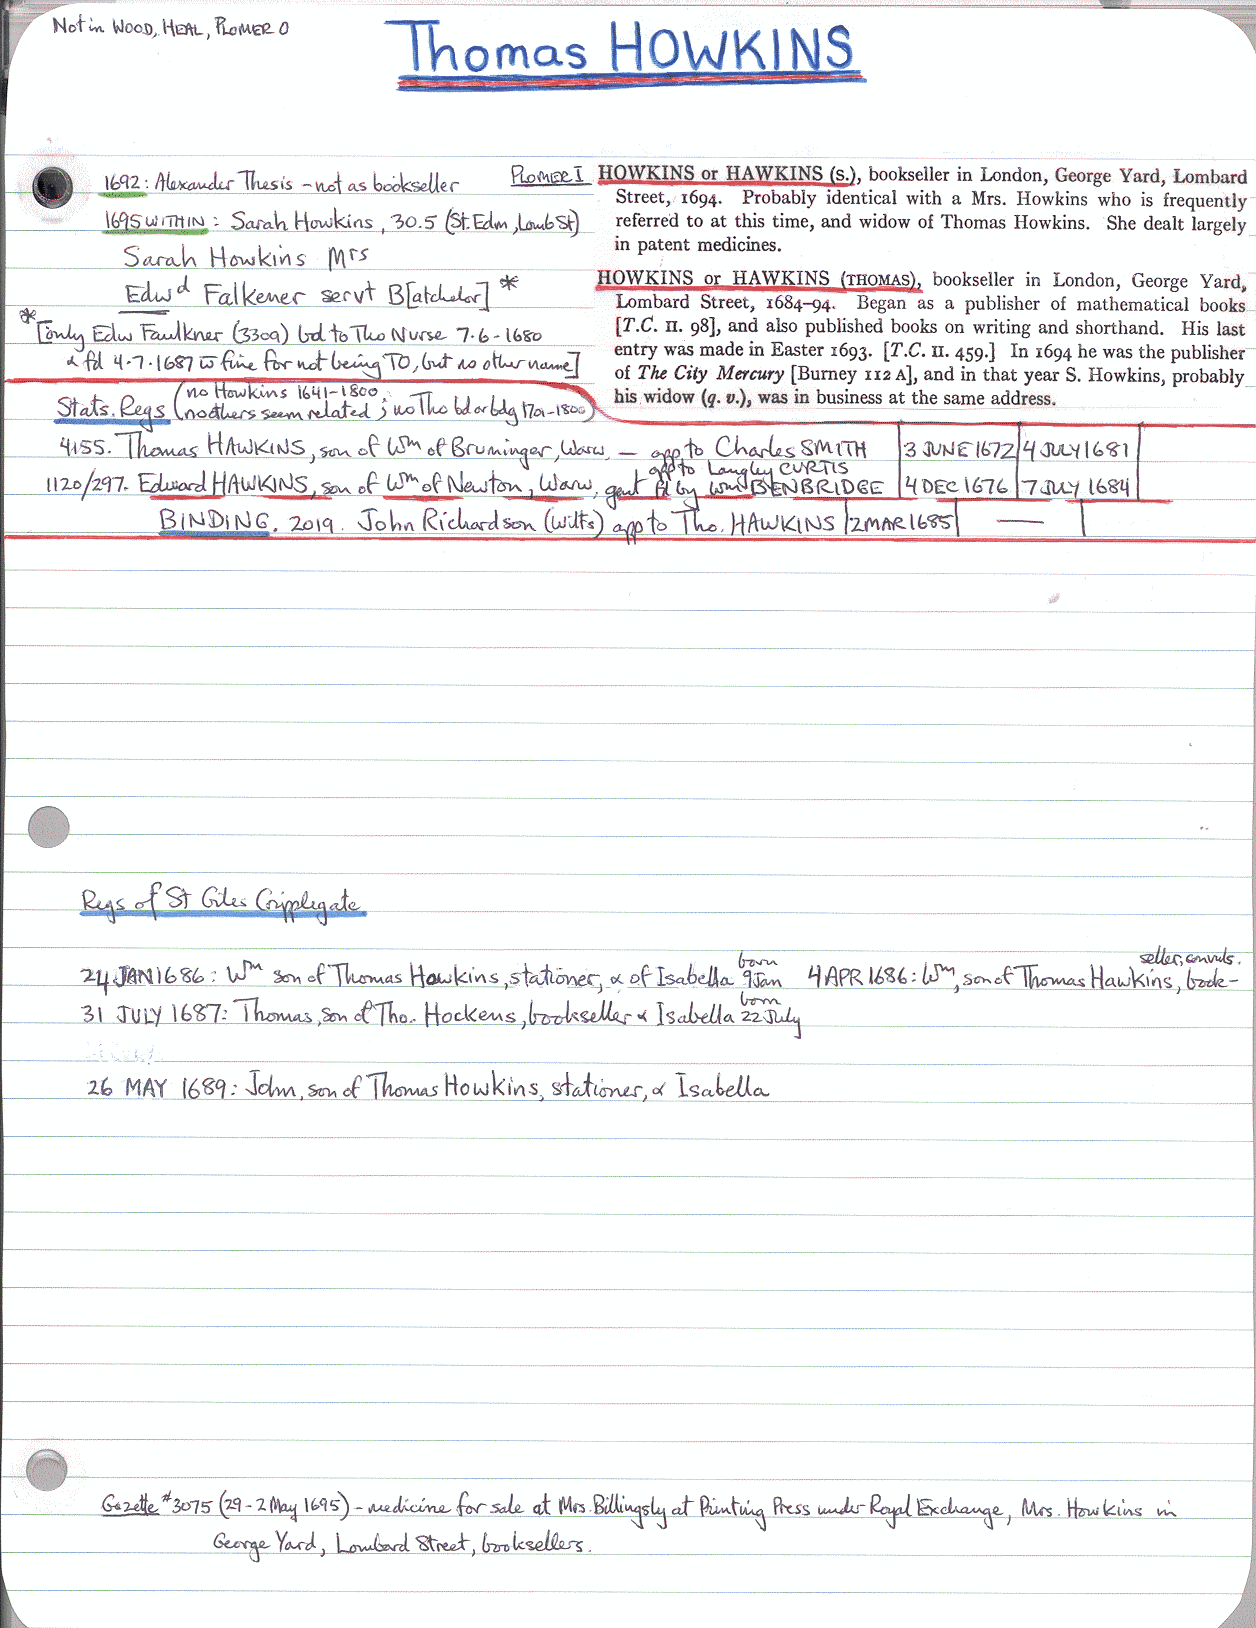 Not in WOOD, HEAL, PLOMER O
Thomas HOWKINS
1692: Alexander Thesis – not as bookseller
1695 WITHIN: Sarah Howkins, 30.5 (St. Edm, Lomb St)
Sarah Howkins Mrs
Edwd Falkener servt B[atchelor] *
*[only Edw Faulkner (3309) bd to Tho Nurse 7·6·1680
& fd 4·7·1687 w fine for not being TO, but no other name]
PLOMER I
HOWKINS or HAWKINS (S.), bookseller in London, George Yard, Lombard
Street, 1694. Probably identical with a Mrs. Howkins who is frequently
referred to at this time, and widow of Thomas Howkins. She dealt largely
in patent medicines.
HOWKINS or HAWKINS (THOMAS), bookseller in London, George Yard,
Lombard Street, 1684–94. Began as a publisher of mathematical books
[T.C. II. 98], and also published books on writing and shorthand. His last
entry was made in Easter 1693. [T.C. II. 459.] In 1694 he was the publisher
of The City Mercury [Burney 112 A], and in that year S. Howkins, probably
his widow (q. v.), was in business at the same address.
Stats. Regs (no Howkins 1641–1800
no others seem related; no Tho bd or bdg 1701–1800)
4155. Thomas HAWKINS, son of Wm of Bruminger, Warw, – app to Charles SMITH 3 JUNE 1672 4 JULY 1681
app to Langley CURTIS
1120/297. Edward HAWKINS, son of Wm of Newton, Warw, gent fd by Wm BENBRIDGE 4 DEC 1676 7 JULY 1684
BINDING. 2019. John Richardson (Wilts) app to Tho. HAWKINS 2 MAR 1685 —
Regs of St Giles Cripplegate
24 JAN 1686: Wm son of Thomas Howkins, stationer, & of Isabella born 9 Jan 4 APR 1686: Wm, son of Thomas Hawkins, book-
seller, convuls.
31 JULY 1687: Thomas, son of Tho. Hockens, bookseller & Isabella born 22 July
26 MAY 1689: John, son of Thomas Howkins, stationer, & Isabella
Gazette #3075 (29–2 May 1695) – medicine for sale at Mrs. Billingsly at Printing Press under Royal Exchange, Mrs. Howkins in
George Yard, Lombard Street, booksellers.